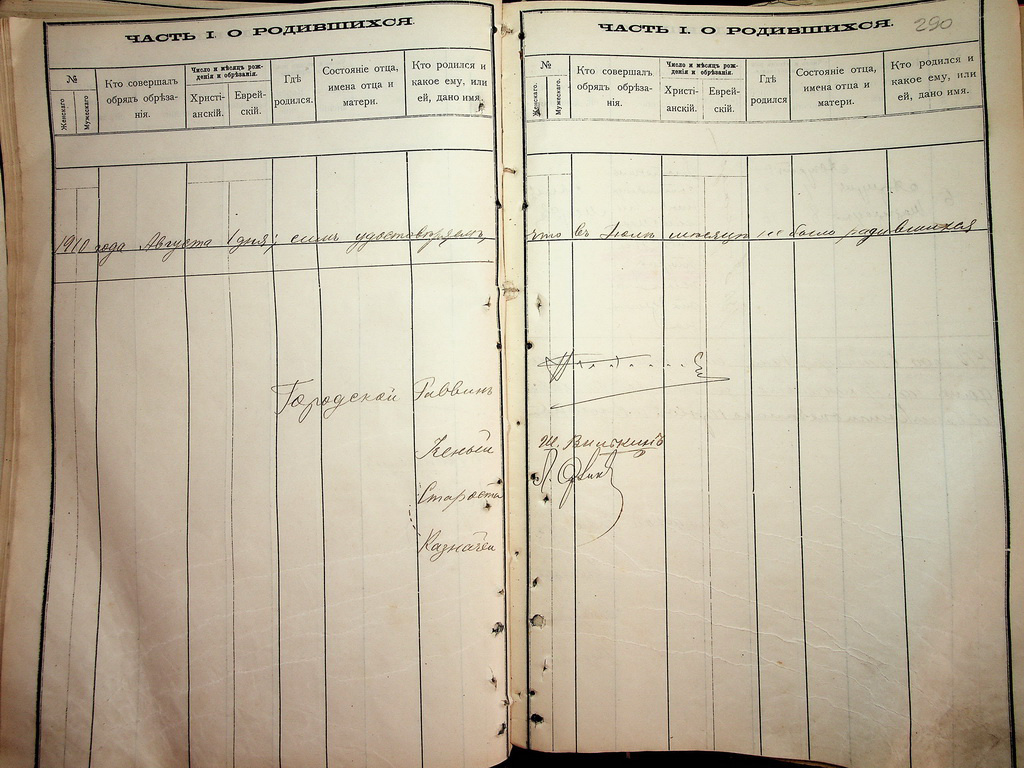 ЧАСТЬ I. О РОДИВШИХСЯ.
№
Женскаго.
Мужескаго.
Кто совершалъ
обрядъ обрѣза-
нія.
Число и мѣсяцъ рож-
денія и обрѣзанія.
Христі-
анскій.
Еврей-
скій.
Гдѣ
родился.
Состояніе отца,
имена отца и
матери.
Кто родился и
какое ему, или
ей, дано имя.
1910 года Августа 1 дня; симъ удостовѣряемъ,
Городской Раввинъ
Ученый
Староста
Казначей
ЧАСТЬ I. О РОДИВШИХСЯ.
290
№
Женскаго.
Мужескаго.
Кто совершалъ
обрядъ обрѣза-
нія.
Число и мѣсяцъ рож-
денія и обрѣзанія.
Христі-
анскій.
Еврей-
скій.
Гдѣ
родился
Состояніе отца,
имена отца и
матери.
Кто родился и
какое ему, или
ей, дано имя.
что въ Іюль мѣсяцѣ не было родившихся
Ш. Вилькинъ